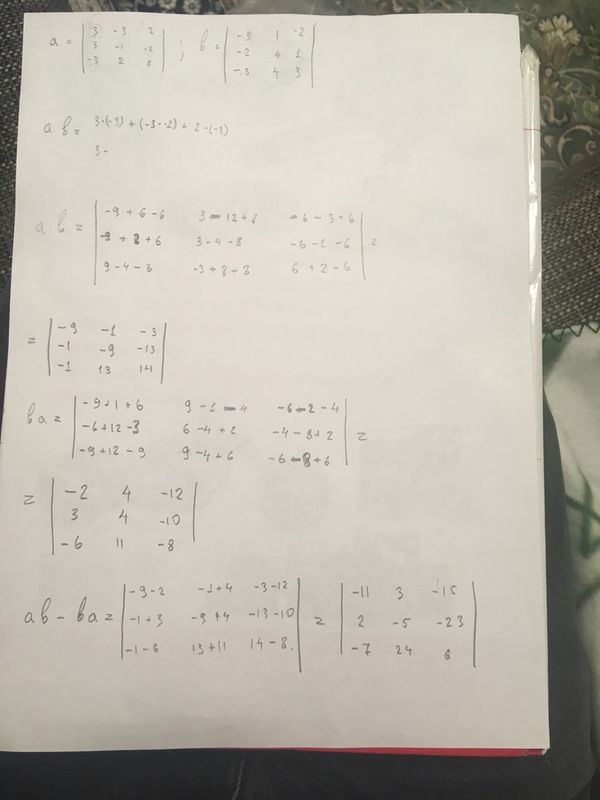 a = | 3 -3 2 | ; b = | -3 1 -2 |
| 3 -1 -2 | | -2 4 1 |
| -3 2 2 | | -3 4 3 |
a b = 3·(-3) + (-3·-2) + 2·(-3)
3·
a·b = | -9+6-6 3-12+8 -6-3+6 |
| -9+2+6 3-4-8 -6-1-6 | =
| 9-4-6 -3+8+8 6+2+6 |
= | -9 -1 -3 |
| -1 -9 -13 |
| -1 13 14 |
ba = | -9+1+6 9-1-4 -6-2-4 |
| -6+12-3 6-4+2 -4-8+2 | =
| -9+12-9 9-4+6 -6-8+6 |
= | -2 4 -12 |
| 3 4 -10 |
| -6 11 -8 |
ab - ba = | -9-2 -1+4 -3-12 | = | -11 3 -15 |
| -1+3 -9+4 -13-10 | | 2 -5 -23 |
| -1-6 13+11 14-8. | | -7 24 6 |